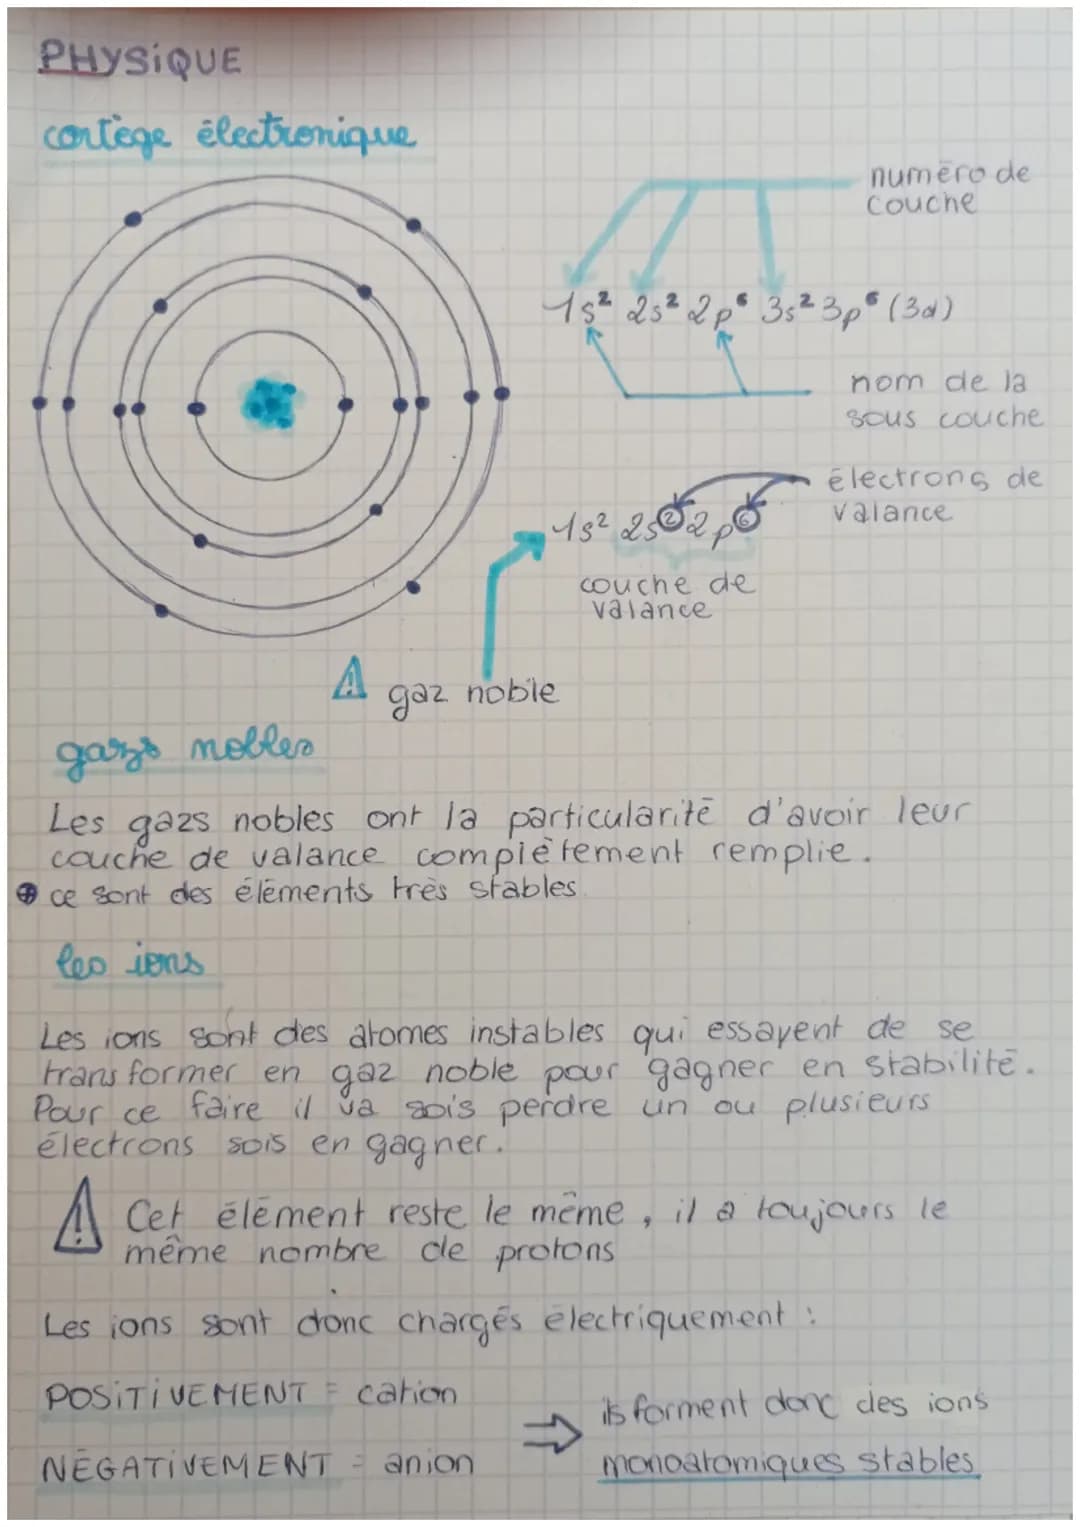 PHYSiQUE
cortège électronique
numéro de
couche
1s² 2s² 2p⁶ 3s² 3p⁶ (3d)
nom de la
sous couche
électrons de
valance
1s² 2s² 2p⁶
couche de
valance
⚠ gaz noble
gazs nobles
Les gazs nobles ont la particularité d'avoir leur
couche de valance complètement remplie.
ce sont des éléments très stables.
les ions
Les ions sont des atomes instables qui essayent de se
transformer en gaz noble pour gagner en stabilité.
Pour ce faire il va sois perdre un ou plusieurs
électrons sois en gagner.
⚠ Cet élément reste le même, il a toujours le
même nombre de protons
Les ions sont donc chargés électriquement :
POSiTiVEMENT = cation
NÉGATiVEMENT = anion
⇒ ils forment donc des ions
monoatomiques stables